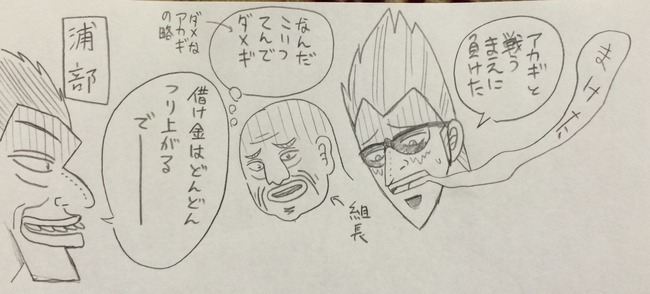 まけだ
アカギと
戦う
まえに
負けた
なんだ
こいつ
てんで
ダメギ
ダメな
アカギ
の略
組長
借け金はどんどん
つり上がる
でーー
浦部